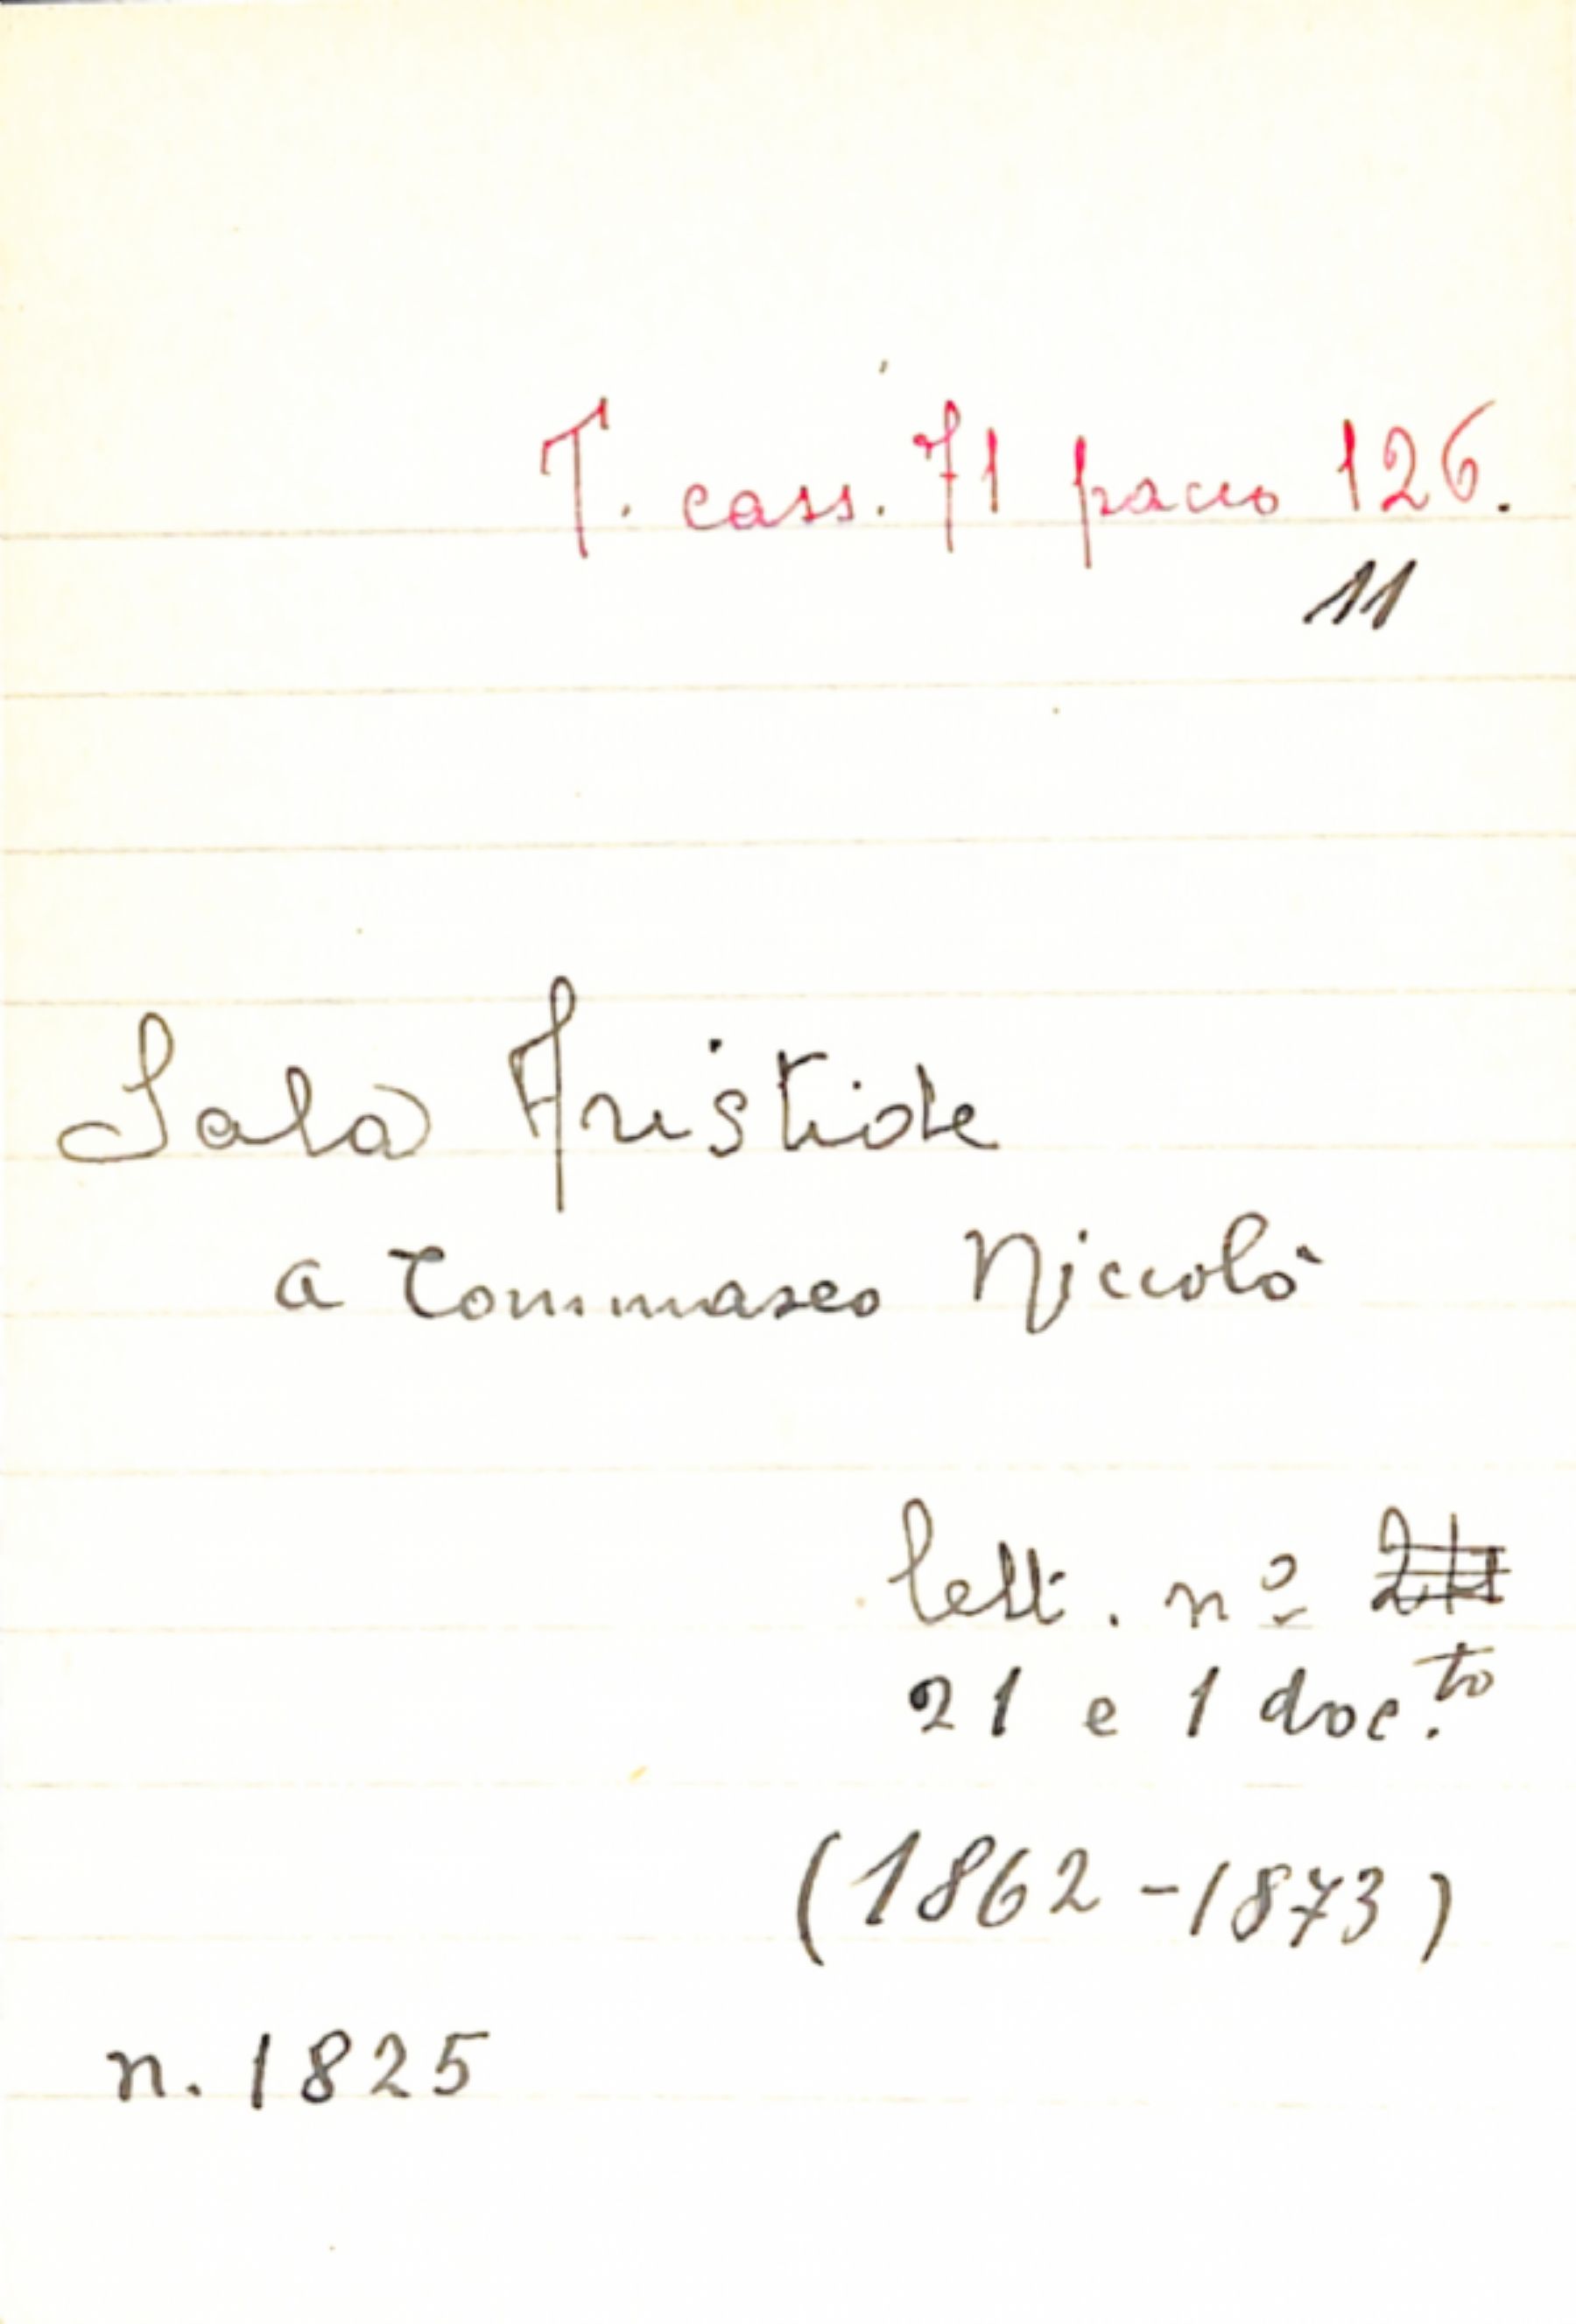 T. cass. 71 pacco 126.
11
Sala Aristide
a Tommaseo Niccolò
lett. nº
21 e 1 doc.to
(1862-1873)
n. 1825